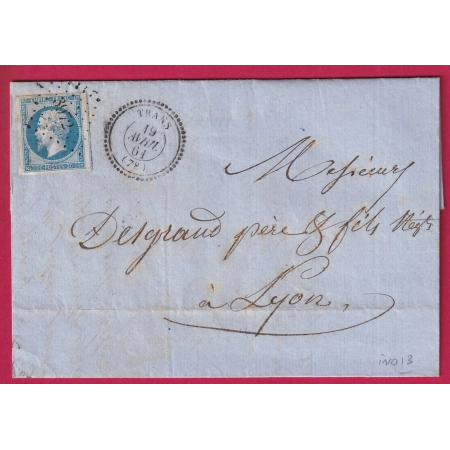 TRANS
19
AVRIL
61
(78)
POSTES
Messieurs
Desgrand père & fils Négts
à Lyon,
IND13